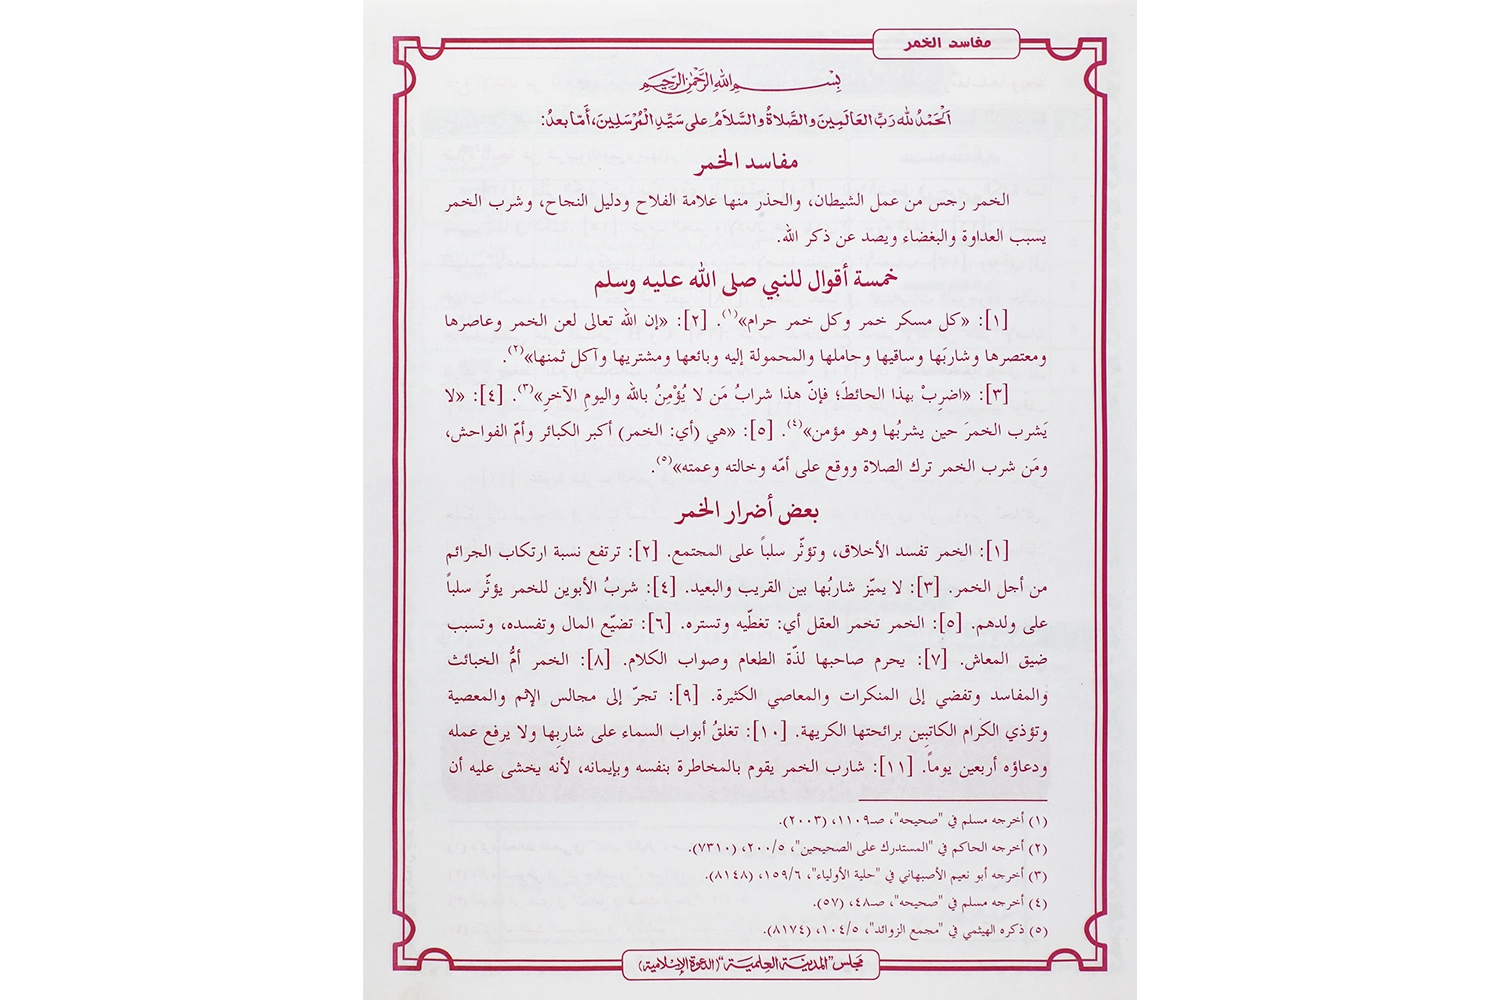 مفاسد الخمر
بِسْمِ اللهِ الرَّحْمٰنِ الرَّحِيْمِ
اَلْحَمْدُ لله رَبِّ العَالَمِينَ وَالصَّلَاةُ وَالسَّلَامُ على سَيِّدِ المُرْسَلِينَ، أمّا بعدُ:
مفاسد الخمر
الخمر رجس من عمل الشيطان، والحذر منها علامة الفلاح ودليل النجاح، وشرب الخمر
يسبب العداوة والبغضاء ويصد عن ذكر الله.
خمسة أقوال للنبي صلى الله عليه وسلم
[١]: «كل مسكر خمر وكل خمر حرام»(١). [٢]: «إن الله تعالى لعن الخمر وعاصرها
ومعتصرها وشاربَها وساقيها وحاملها والمحمولة إليه وبائعها ومشتريها وآكل ثمنها»(٢).
[٣]: «اضرِبْ بهذا الحائطَ؛ فإنّ هذا شرابُ مَن لا يُؤْمِنُ بالله واليومِ الآخرِ»(٣). [٤]: «لا
يَشرب الخمرَ حين يشربُها وهو مؤمن»(٤). [٥]: «هي (أي: الخمر) أكبر الكبائر وأمّ الفواحش،
ومَن شرب الخمر ترك الصلاة ووقع على أمّه وخالته وعمته»(٥).
بعض أضرار الخمر
[١]: الخمر تفسد الأخلاق، وتؤثّر سلباً على المجتمع. [٢]: ترتفع نسبة ارتكاب الجرائم
من أجل الخمر. [٣]: لا يميّز شاربُها بين القريب والبعيد. [٤]: شربُ الأبوين للخمر يؤثّر سلباً
على ولدهم. [٥]: الخمر تخمر العقل أي: تغطّيه وتستره. [٦]: تضيّع المال وتفسده، وتسبب
ضيق المعاش. [٧]: يحرم صاحبها لذّة الطعام وصواب الكلام. [٨]: الخمر أمُّ الخبائث
والمفاسد وتفضي إلى المنكرات والمعاصي الكثيرة. [٩]: تجرّ إلى مجالس الإثم والمعصية
وتؤذي الكرام الكاتبِين برائحتها الكريهة. [١٠]: تغلقُ أبواب السماء على شاربِها ولا يرفع عمله
ودعاؤه أربعين يوماً. [١١]: شارب الخمر يقوم بالمخاطرة بنفسه وبإيمانه، لأنه يخشى عليه أن
(١) أخرجه مسلم في "صحيحه"، صـ١١٠٩، (٢٠٠٣).
(٢) أخرجه الحاكم في "المستدرك على الصحيحين"، ٢٠٠/٥، (٧٣١٠).
(٣) أخرجه أبو نعيم الأصبهاني في "حلية الأولياء"، ١٥٩/٦، (٨١٤٨).
(٤) أخرجه مسلم في "صحيحه"، صـ٤٨، (٥٧).
(٥) ذكره الهيثمي في "مجمع الزوائد"، ١٠٤/٥، (٨١٧٤).
مجلس "المدينة العلمية" (الدعوة الإسلامية)